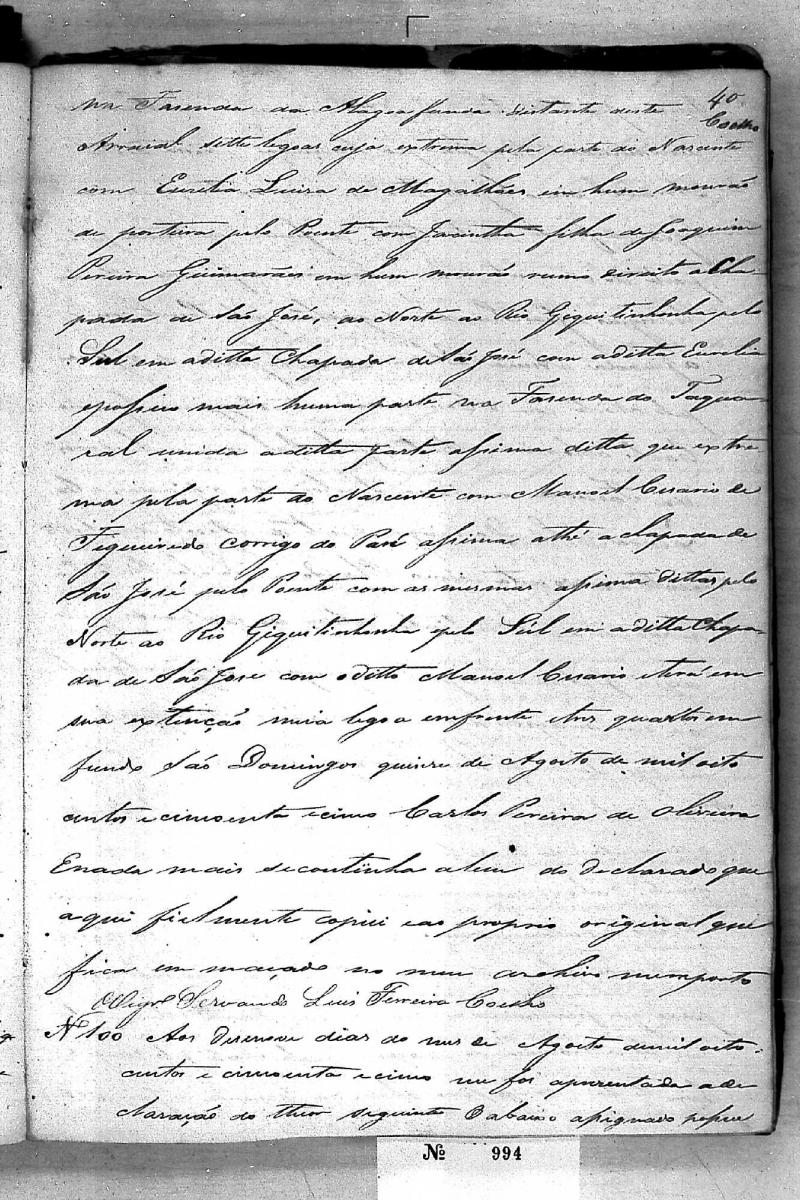 40
Coelho
na Fazenda da Alagoa funda distante deste
Arraial sette legoas cuja extrema pela parte do Nascente
com Eurelia Luiza de Magalhães em hum mourão
de porteira pelo Poente com Jacintha filha de Joaquim
Pereira Guimarães em hum mourão rumo direito a Cha-
pada de São José, ao Norte ao Rio Giquitinhonha pelo
Sul em a ditta Chapada de São José com a ditta Eurelia
e possuo mais huma parte na Fazenda do Taqua-
ral unida a ditta parte assima ditta que extre-
ma pela parte do Nascente com Manoel Cesario de
Figueiredo corrigo do Paré assima athé a chapada de
São José pelo Poente com as mesmas assima dittas pelo
Norte ao Rio Giquitinhonha e pelo Sul em a ditta Chapa-
da de São José com o ditto Manoel Cesario e terá em
sua extenção meia legoa em frente e tres quartos em
fundo São Domingos quinze de Agosto de mil oito
centos e cincoenta e cinco Carlos Pereira de Oliveira
E nada mais se continha alem do declarado que
aqui fielmente copiei e ao proprio original que
fica em maçado no meu archivo me reporto
O Vigr.º Servando Luis Ferreira Coelho
Nº 100 Aos desenove dias do mes de Agosto de mil oito-
centos e cincoenta e cinco me foi aprezentada a de
claração do theor seguinte O abaixo assignado possue
№ 994